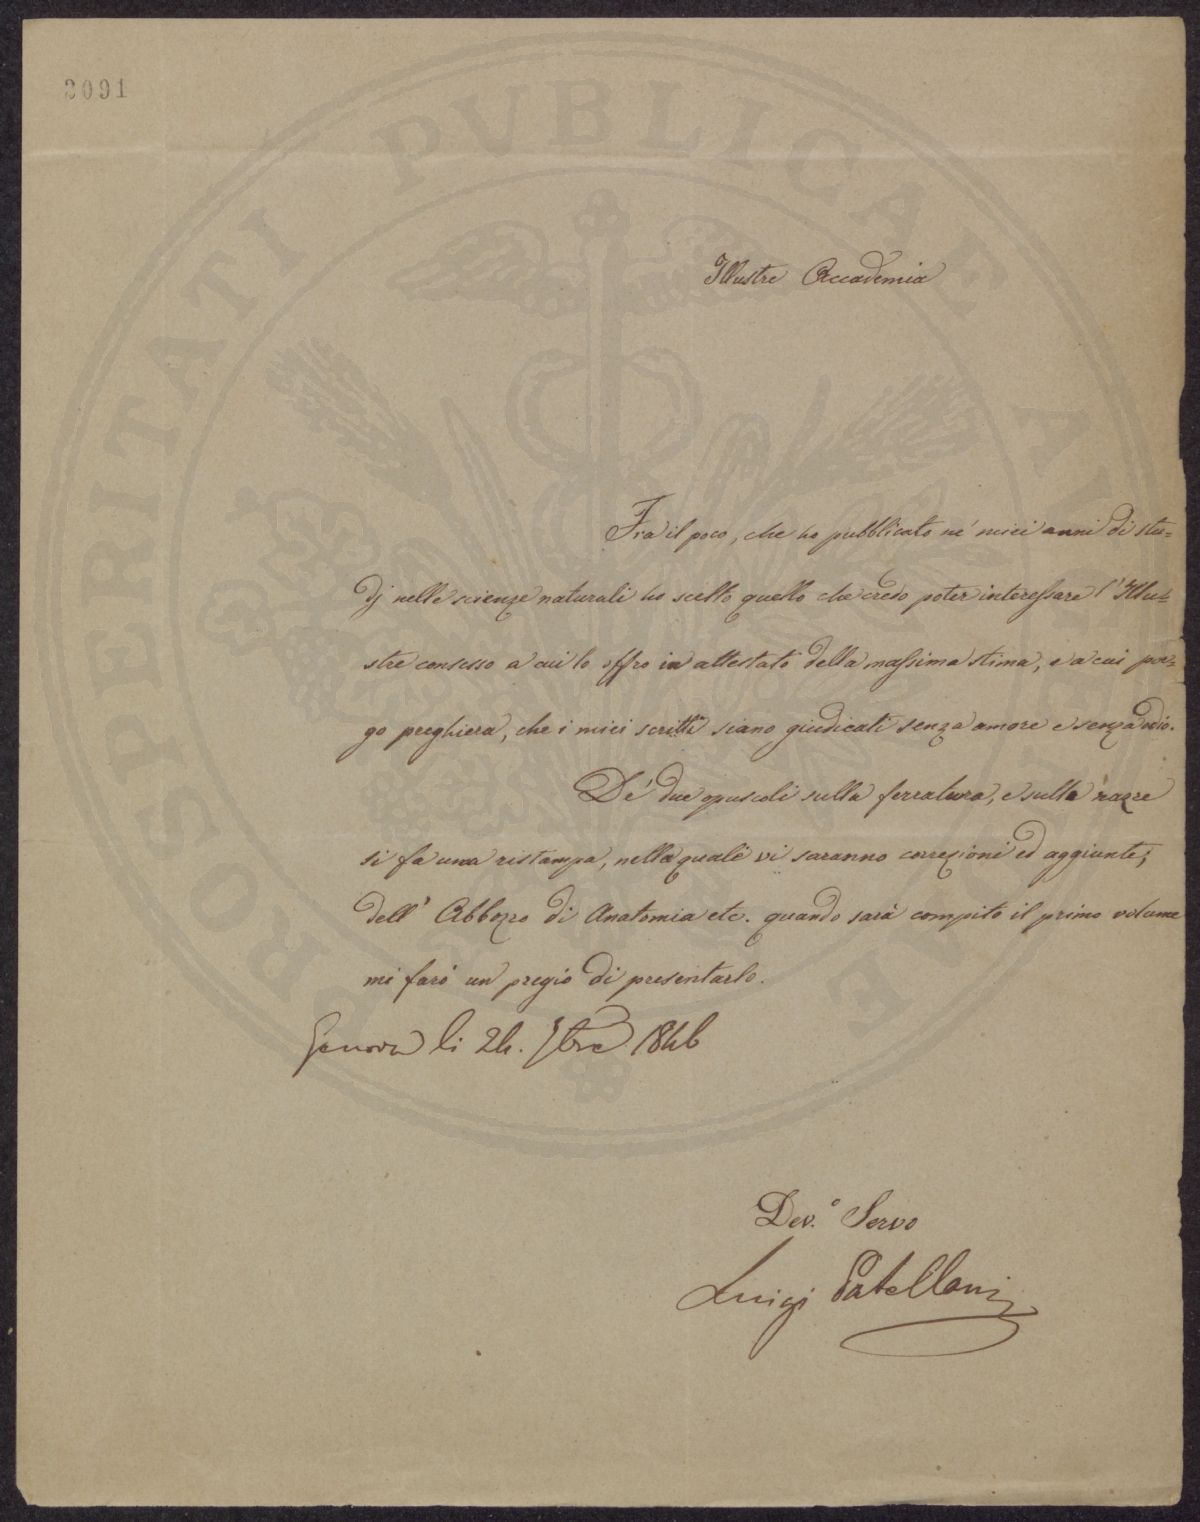 2091
PROSPERITATI PUBLICAE AUGENDAE
Illustre Accademia
Fra il poco, che ho pubblicato ne' miei anni di stu=
dj nelle scienze naturali ho scelto quello che credo poter interessare l'Illu=
stre consesso a cui lo offro in attestato della massima stima, e a cui por=
go preghiera, che i miei scritti siano giudicati senza amore e senza odio.
De' due opuscoli sulla ferratura, e sulle razze
si fa una ristampa, nella quale vi saranno correzioni ed aggiunte;
dell' Abbozzo di Anatomia etc. quando sarà compito il primo volume
mi farò un pregio di presentarlo.
Genova li 24. 7bre 1846
Dev.o Servo
Luigi Patellani